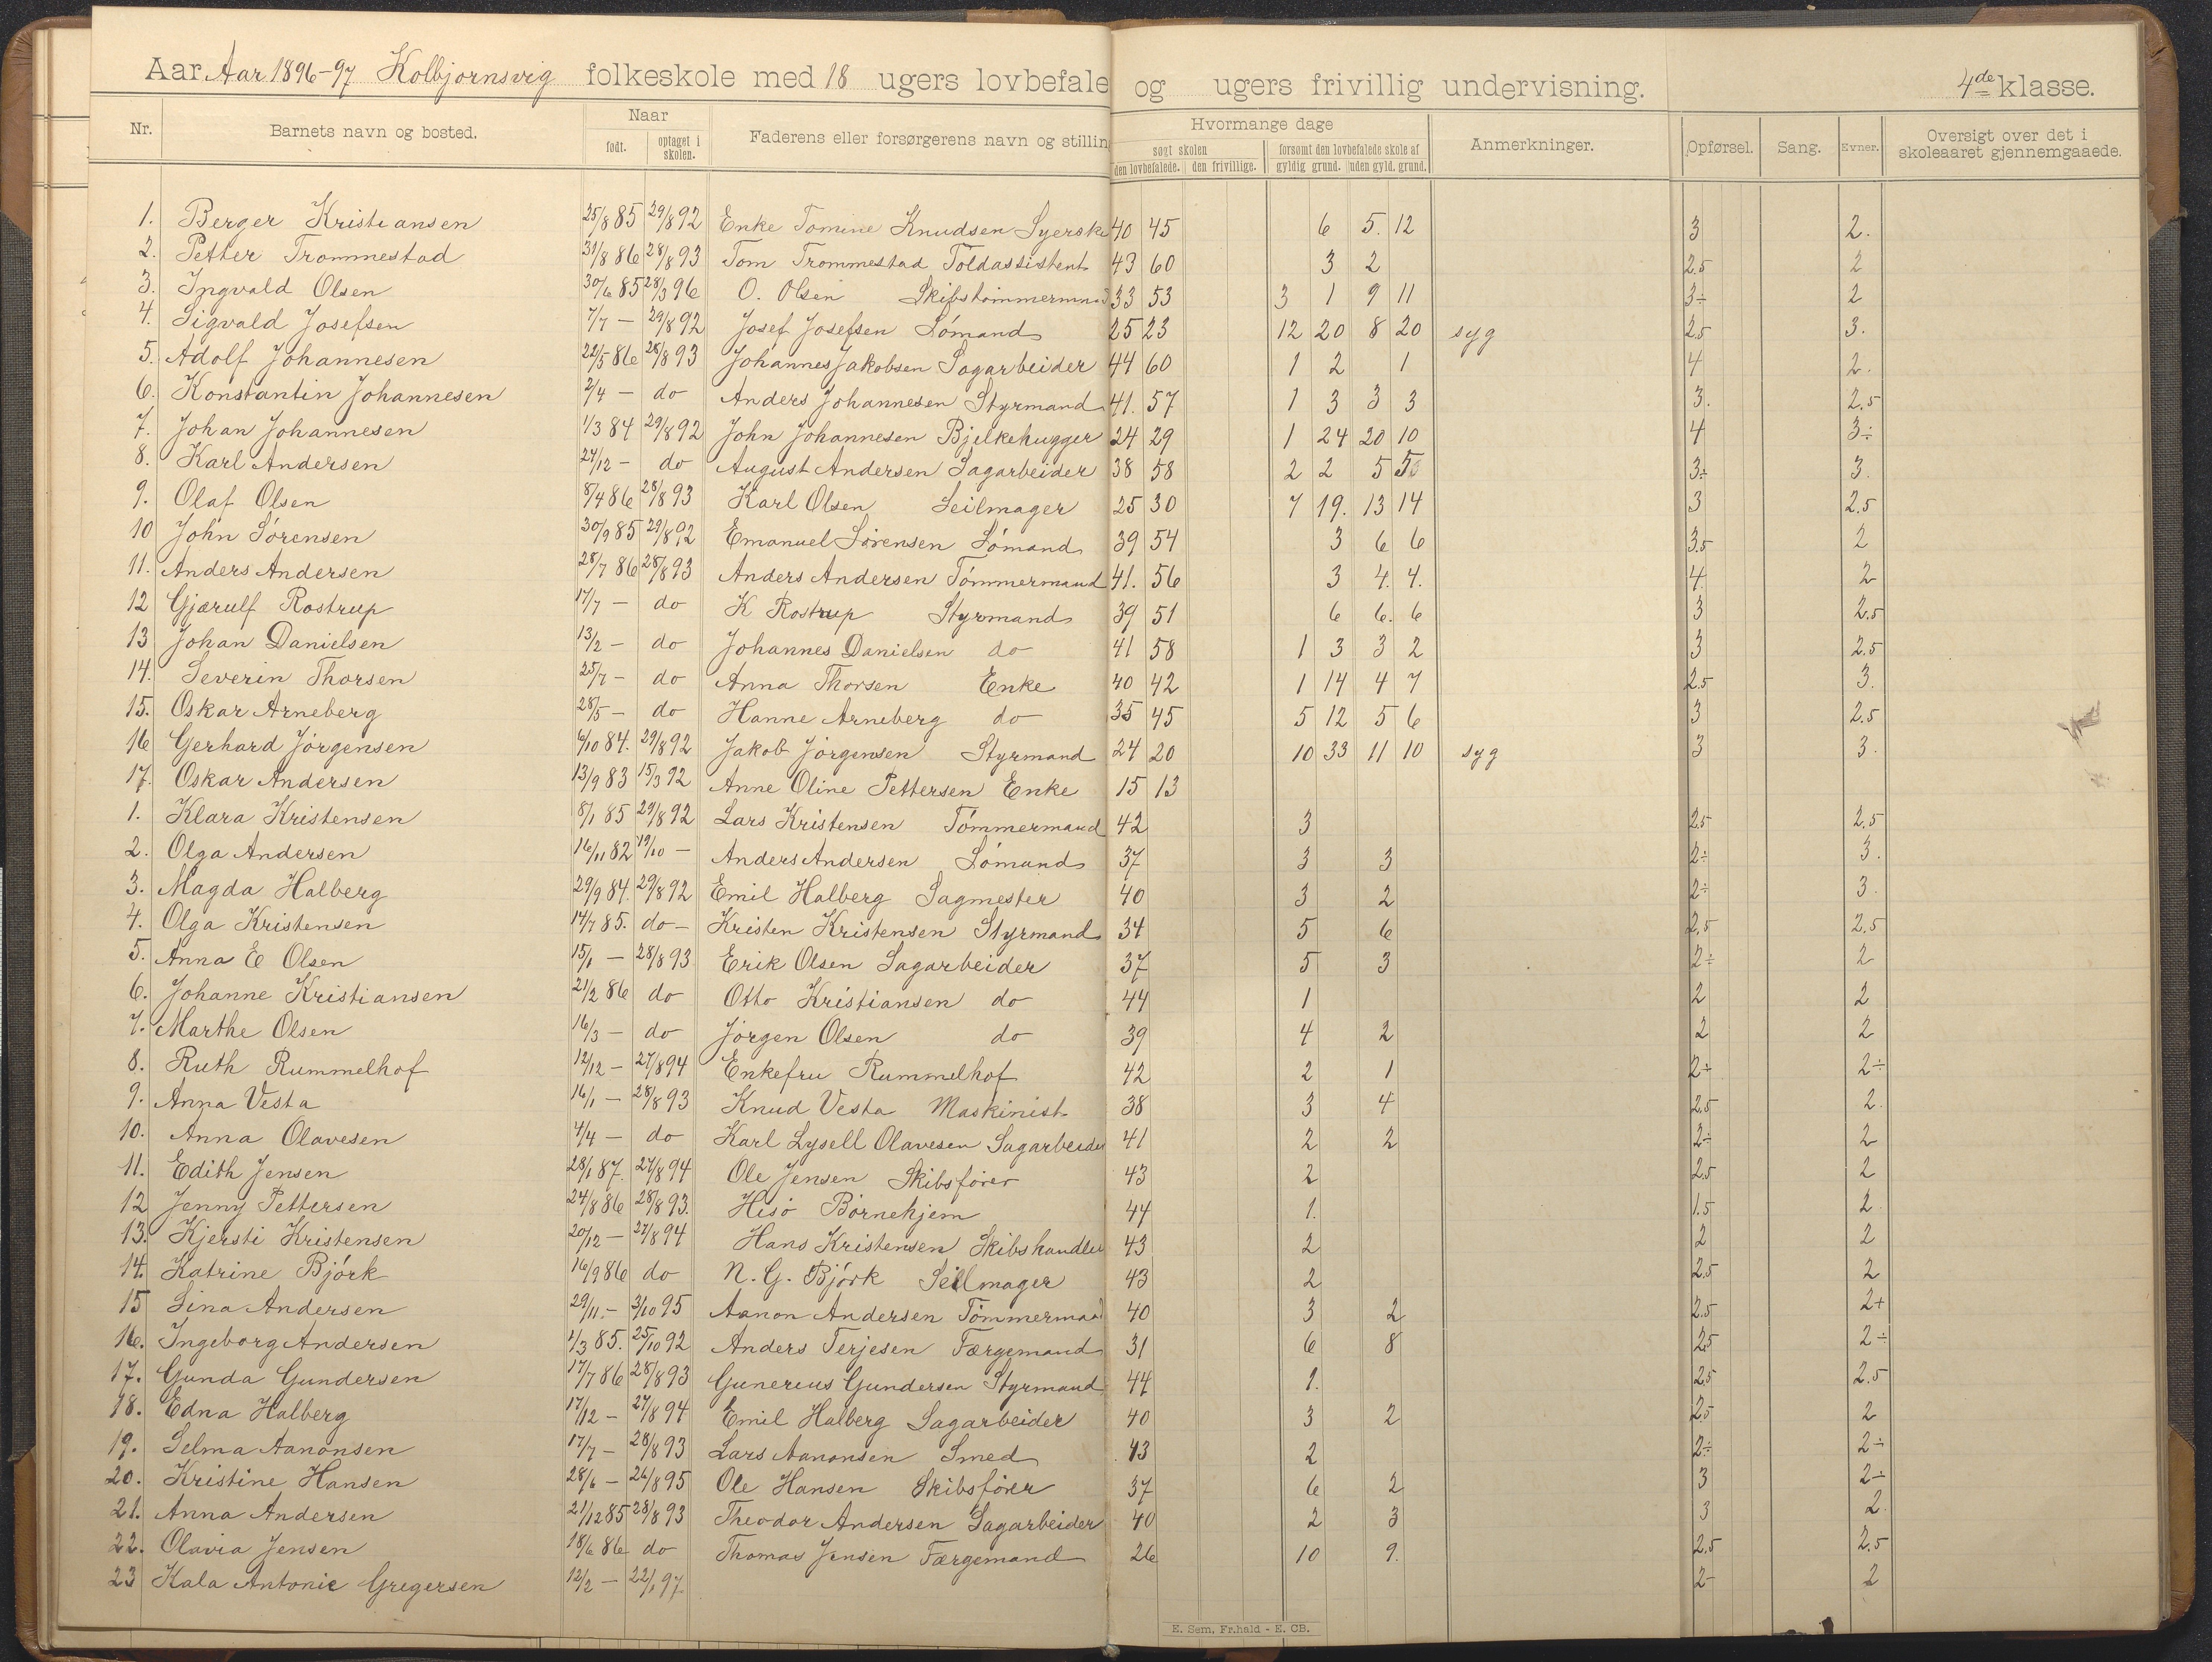 Aar Aar 1896-97 Kolbjornsvig folkeskole med 18 ugers lovbefale og ugers frivillig undervisning. 4de klasse.
Nr. Barnets navn og bosted. Naar født. optaget i skolen. Faderens eller forsørgerens navn og stillin Hvormange dage søgt skolen den lovbefalede. den frivillige. forsømt den lovbefalede skole af gyldig grund. uden gyld. grund. Anmerkninger. Opførsel. Sang. Evner. Oversigt over det i skoleaaret gjennemgaaede.
1. Berger Kristiansen 25/8 85 29/8 92 Enke Tomine Knudsen Syerske 40 45 6 5. 12 3 2.
2. Petter Trommestad 31/8 86 28/8 93 Tom Trommestad Toldassistent 43 60 3 2 2.5 2
3. Ingvald Olsen 30/6 85 28/3 96 O. Olsen Skibstømmermand 33 53 3 1 9 11 3÷ 2
4. Sigvald Josefsen 7/7 — 29/8 92 Josef Josefsen Sømand 25 23 12 20 8 20 syg 2.5 3.
5. Adolf Johannesen 22/5 86 28/8 93 Johannes Jakobsen Sagarbeider 44 60 1 2 1 4 2.
6. Konstantin Johannesen 2/4 — do Anders Johannesen Styrmand 41. 57 1 3 3 3 3. 2.5
7. Johan Johannesen 1/3 84 29/8 92 John Johannesen Bjelkehugger 24 29 1 24 20 10 4 3÷
8. Karl Andersen 27/12 — do August Andersen Sagarbeider 38 58 2 2 5 5 3÷ 3.
9. Olaf Olsen 8/4 86 28/8 93 Karl Olsen Seilmager 25 30 7 19. 13 14 3 2.5
10 John Sørensen 30/9 85 29/8 92 Emanuel Sørensen Sømand 39 54 3 6 6 3.5 2
11. Anders Andersen 28/7 86 28/8 93 Anders Andersen Tømmermand 41. 56 3 4. 4. 4. 2
12 Gjærulf Rostrup 17/7 — do K Rostrup Styrmand 39 51 6 6. 6 3 2.5
13 Johan Danielsen 13/2 — do Johannes Danielsen do 41 58 1 3 3 2 3 2.5
14. Severin Thorsen 25/7 — do Anna Thorsen Enke 40 42 1 14 4 7 2.5 3.
15. Oskar Arneberg 28/5 — do Hanne Arneberg do 35 45 5 12 5 6 3 2.5
16 Gerhard Jørgensen 6/10 84. 29/8 92 Jakob Jørgensen Styrmand 24 20 10 33 11 10 syg 3 3.
17. Oskar Andersen 13/9 83 15/3 92 Anne Oline Pettersen Enke 15 13
1. Klara Kristensen 8/1 85 29/8 92 Lars Kristensen Tømmermand 42 3 2.5 2.5
2. Olga Andersen 16/11 82 19/10 — Anders Andersen Sømand 37 3 3 2÷ 3.
3. Magda Halberg 29/9 84. 29/8 92 Emil Halberg Sagmester 40 3 2 2÷ 3.
4. Olga Kristensen 14/7 85. do — Kristen Kristensen Styrmand 34 5 6 2.5 2.5
5. Anna E Olsen 15/1 — 28/8 93 Erik Olsen Sagarbeider 37 5 3 2÷ 2
6. Johanne Kristiansen 21/2 86 do Otto Kristiansen do 44 1 2 2
7. Marthe Olsen 16/3 — do Jørgen Olsen do 39 4 2 2 2
8. Ruth Rummelhof 12/12 — 27/8 94 Enkefru Rummelhof 42 2 1 2÷ 2÷
9. Anna Vesta 16/1 — 28/8 93 Knud Vesta Maskinist 38 3 4 2.5 2.
10. Anna Olavesen 4/4 — do Karl Lysell Olavesen Sagarbeider 41 2 2 2÷ 2
11. Edith Jensen 28/1 87. 27/8 94 Ole Jensen Skibsfører 43 2 2.5 2
12 Jenny Pettersen 24/8 86 28/8 93. Hisø Børnehjem 44 1. 1.5 2
13. Kjersti Kristensen 20/12 — 27/8 94 Hans Kristensen Skibshandler 43 2 2 2
14. Katrine Bjørk 16/9 86 do N. G. Bjørk Seilmager 43 2 2.5 2
15 Lina Andersen 29/11 — 3/10 95 Aanon Andersen Tømmermand 40 3 2 2.5 2+
16. Ingeborg Andersen 1/3 85. 25/10 92 Anders Terjesen Færgemand 31 6 8 2.5 2÷
17. Gunda Gundersen 17/7 86 28/8 93 Gunerius Gundersen Styrmand 44 1. 2.5 2.5
18. Edna Halberg 17/12 — 27/8 94 Emil Halberg Sagarbeider 40 3 2 2.5 2
19. Selma Aanonsen 17/7 — 28/8 93 Lars Aanonsen Smed 43 2 2÷ 2÷
20. Kristine Hansen 28/6 — 26/8 95 Ole Hansen Skibsfører 37 6 2 3 2÷
21. Anna Andersen 21/12 85 28/8 93 Theodor Andersen Sagarbeider 40 2 3 3 2.
22. Olavia Jensen 18/6 86 do Thomas Jensen Færgemand 26 10 9. 2.5 2.5
23 Kala Antonie Gregersen 12/2 — 22/1 97 2÷ 2
E. Sem, Fr.hald - E. CB.